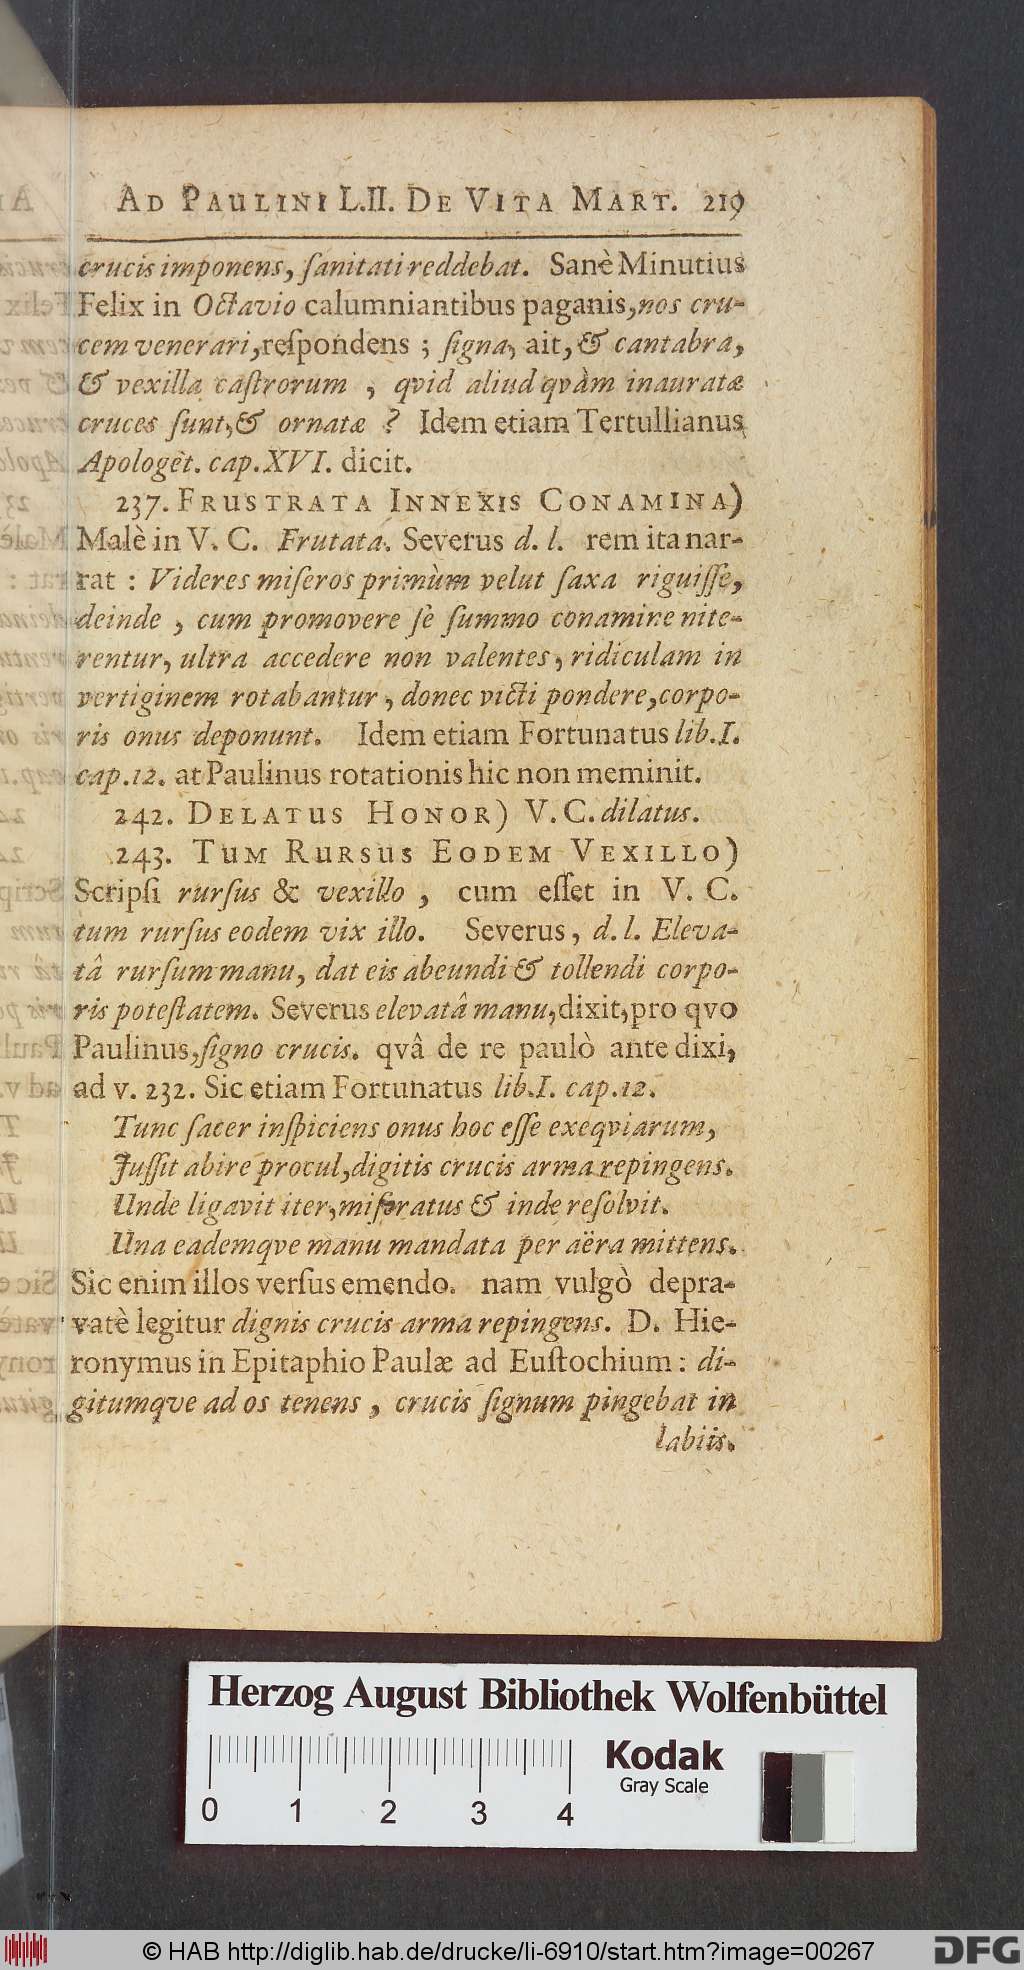 AD PAULINI L.II. DE VITA MART. 219
crucis imponens, ſanitati reddebat. Sanè Minutius
Felix in Octavio calumniantibus paganis, nos cru-
cem venerari, reſpondens ; ſigna, ait, & cantabra,
& vexilla caſtrorum , qvid aliud qvàm inauratæ
cruces ſunt, & ornatæ ? Idem etiam Tertullianus
Apologet. cap. XVI. dicit.
237. FRUSTRATA INNEXIS CONAMINA)
Malè in V. C. Frutata. Severus d. l. rem ita nar-
rat : Videres miſeros primùm velut ſaxa riguiſſe,
deinde , cum promovere ſe ſummo conamine nite-
rentur, ultra accedere non valentes, ridiculam in
vertiginem rotabantur, donec victi pondere, corpo-
ris onus deponunt. Idem etiam Fortunatus lib. I.
cap. 12. at Paulinus rotationis hic non meminit.
242. DELATUS HONOR) V. C. dilatus.
243. TUM RURSUS EODEM VEXILLO)
Scripſi rurſus & vexillo , cum eſſet in V. C.
tum rurſus eodem vix illo. Severus, d. l. Eleva-
tâ rurſum manu, dat eis abeundi & tollendi corpo-
ris poteſtatem. Severus elevatâ manu, dixit, pro qvo
Paulinus, ſigno crucis. qvâ de re paulò ante dixi,
ad v. 232. Sic etiam Fortunatus lib. I. cap. 12.
Tunc ſacer inſpiciens onus hoc eſſe exeqviarum,
Juſſit abire procul, digitis crucis arma repingens.
Unde ligavit iter, miſeratus & inde reſolvit.
Una eademqve manu mandata per aëra mittens.
Sic enim illos verſus emendo. nam vulgò depra-
vatè legitur dignis crucis arma repingens. D. Hie-
ronymus in Epitaphio Paulæ ad Euſtochium : di-
gitumqve ad os tenens , crucis ſignum pingebat in
labiis.
Herzog August Bibliothek Wolfenbüttel
Kodak
Gray Scale
0 1 2 3 4
© HAB http://diglib.hab.de/drucke/li-6910/start.htm?image=00267
DFG